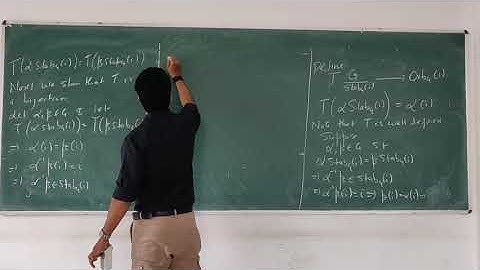 T(α Stab_G(i)) = T(β Stab_G(i))
Now we show that T is
a bijection
let α, β ∈ G & let
T(α Stab_G(i)) = T(β Stab_G(i))
⇒ α(i) = β(i)
⇒ α⁻¹β(i) = i
⇒ α⁻¹β ∈ Stab_G(i)
Define
T: G / Stab_G(i) → Orb_G(i)
T(α Stab_G(i)) = α(i)
Note that T is well defined
Suppose
α, β ∈ G s.t
α Stab_G(i) = β Stab_G(i)
⇒ α⁻¹β ∈ Stab_G(i)
⇒ α⁻¹β(i) = i ⇒ β(i) = α(i) =